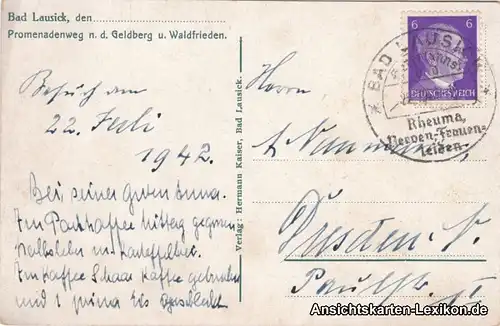 Bad Lausick, den
Promenadenweg n. d. Geldberg u. Waldfrieden.
Besuch am
22. Juli
1942.
Bei seiner guten Anna.
Im Parkkaffee Mittag gegessen
und
Im Kaffee Schaar Kaffee getrunken
und 1 prima Eis
Verlag: Hermann Kaiser, Bad Lausick.
Herrn
A. Naumann
Dresden
6 6
DEUTSCHES REICH
BAD LAUSICK
Rheuma,
Nerven-Frauen-
leiden
Ansichtskarten-Lexikon.de